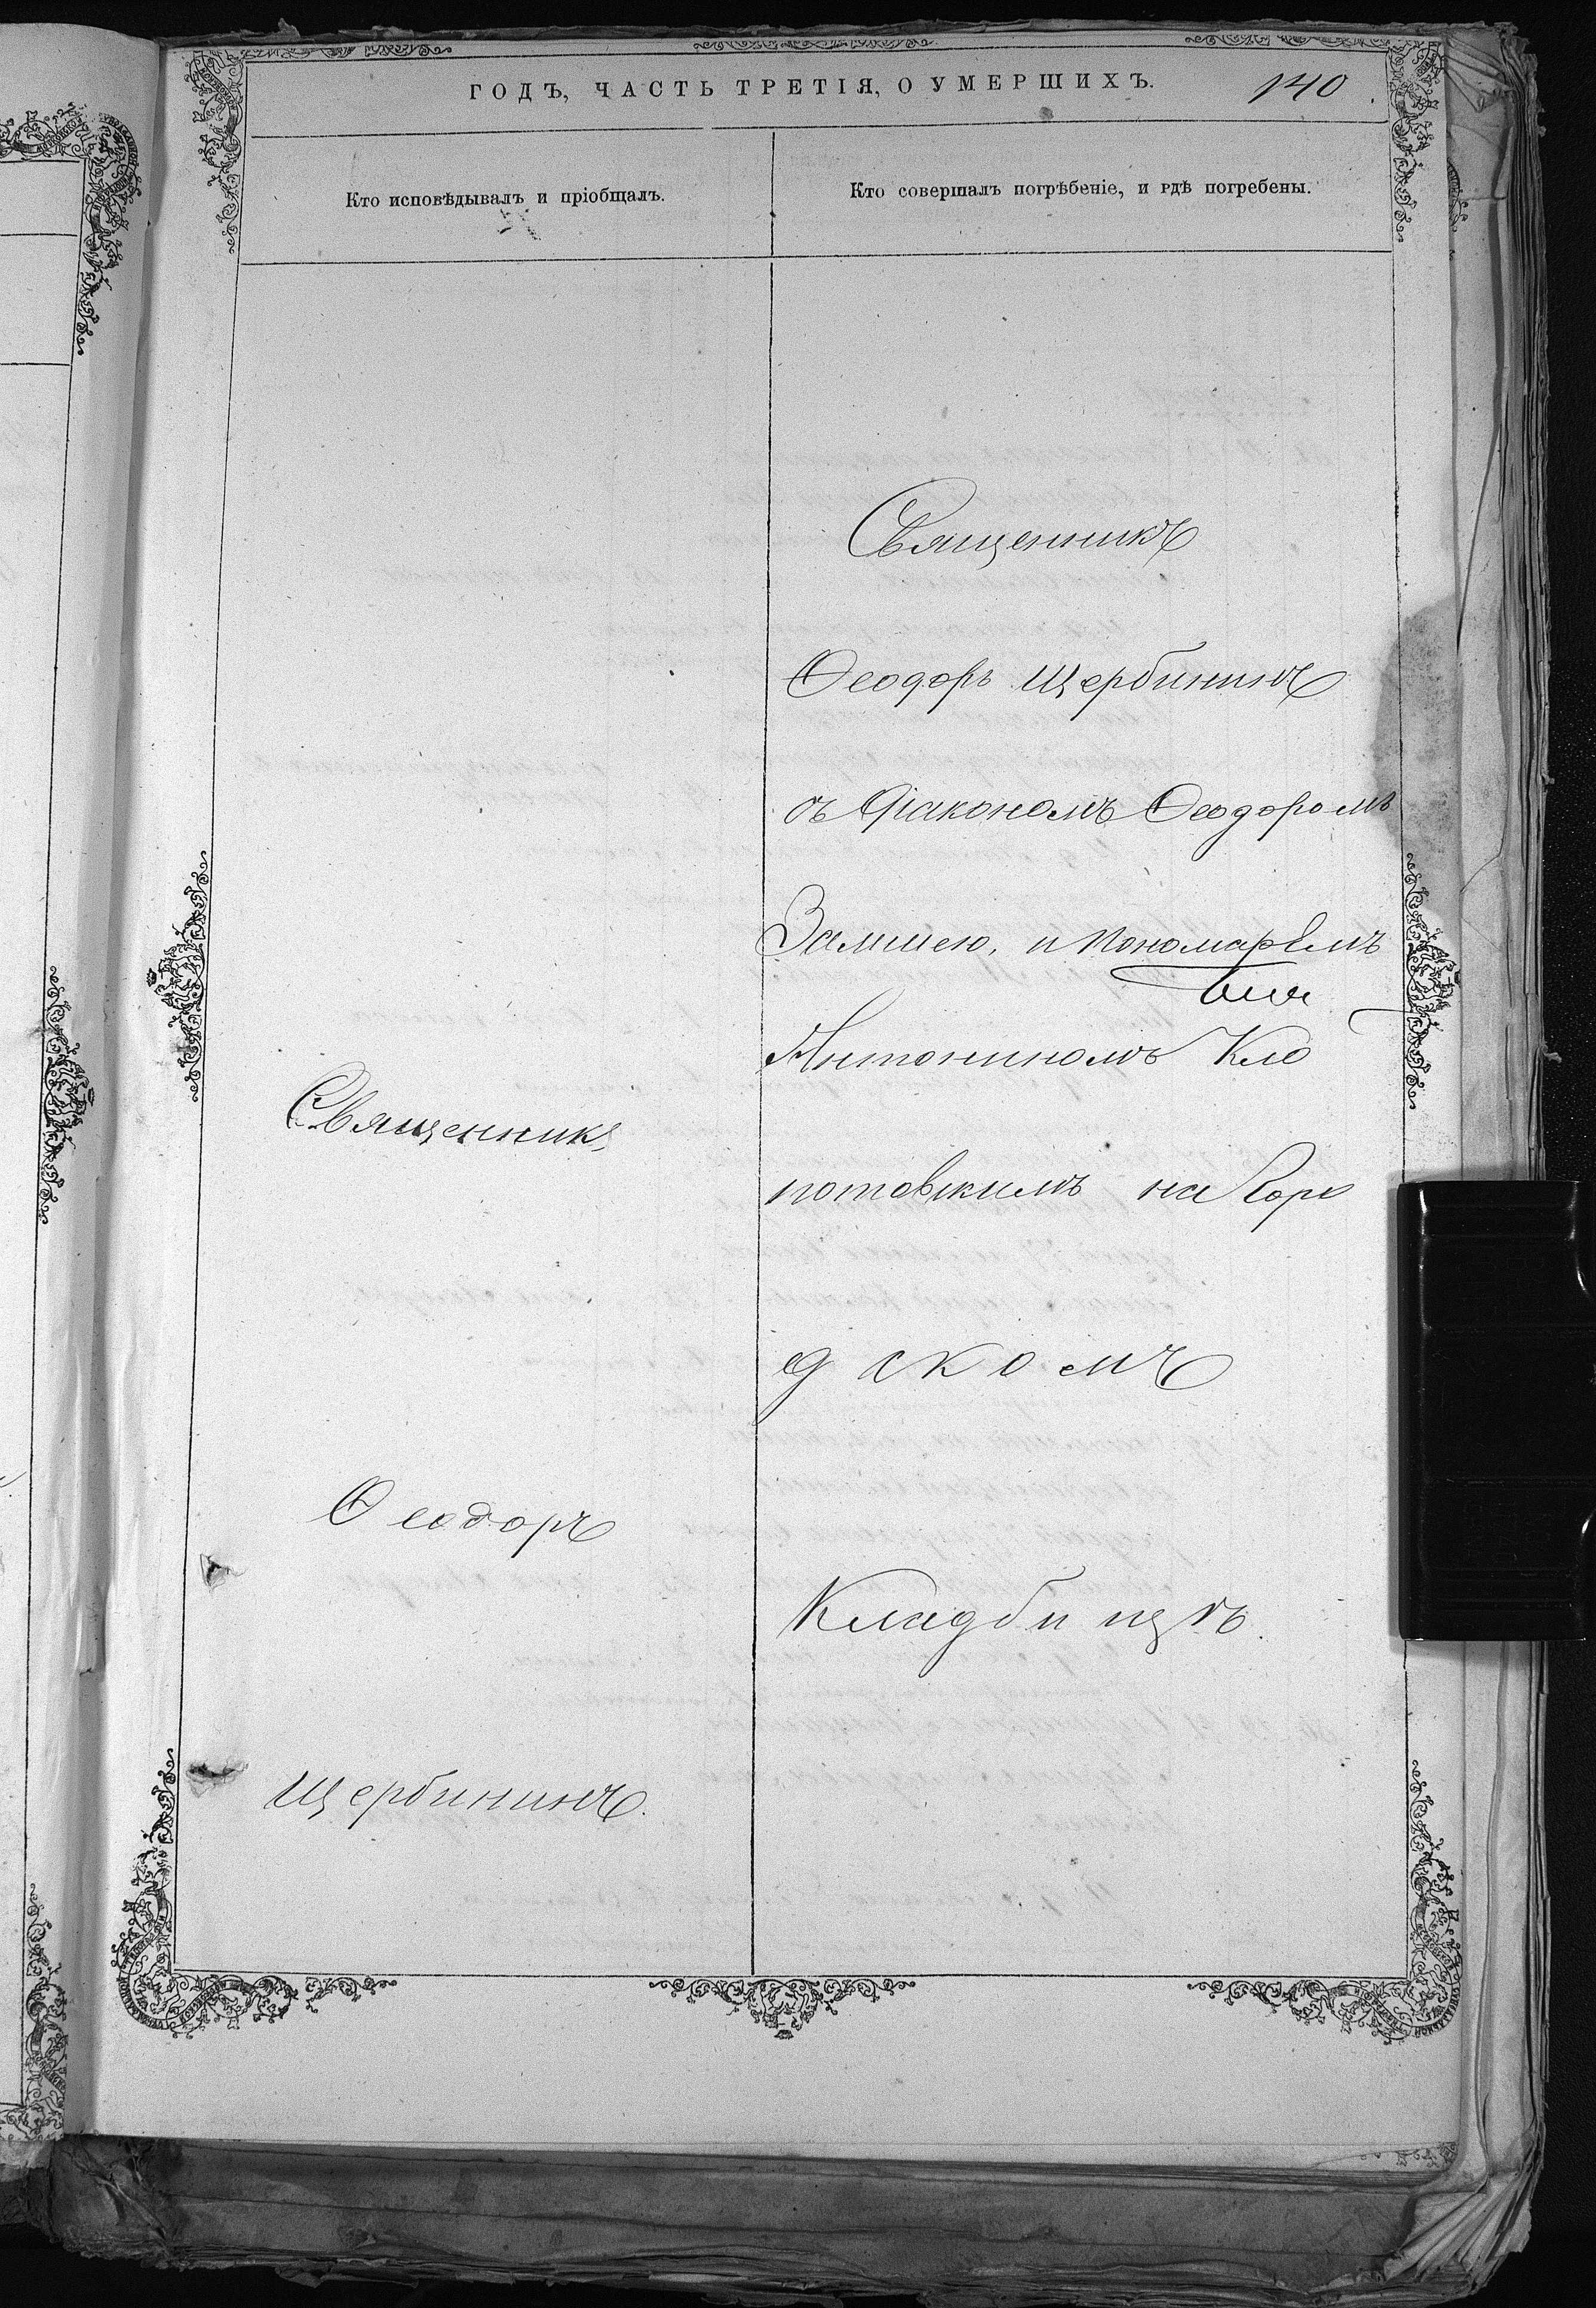 ГОДЪ, ЧАСТЬ ТРЕТІЯ, О УМЕРШИХЪ.
140
Кто исповѣдывалъ и пріобщалъ.
Кто совершалъ погрѣбеніе, и гдѣ погребены.
Священникъ
Ѳеодоръ
Щербининъ.
Священникъ
Ѳеодоръ Щербининъ
съ Діакономъ Ѳеодоромъ
Замшею, и Пономаремъ
Антониномъ Кло
потовскимъ на Горо
дскомъ
Кладбищѣ.